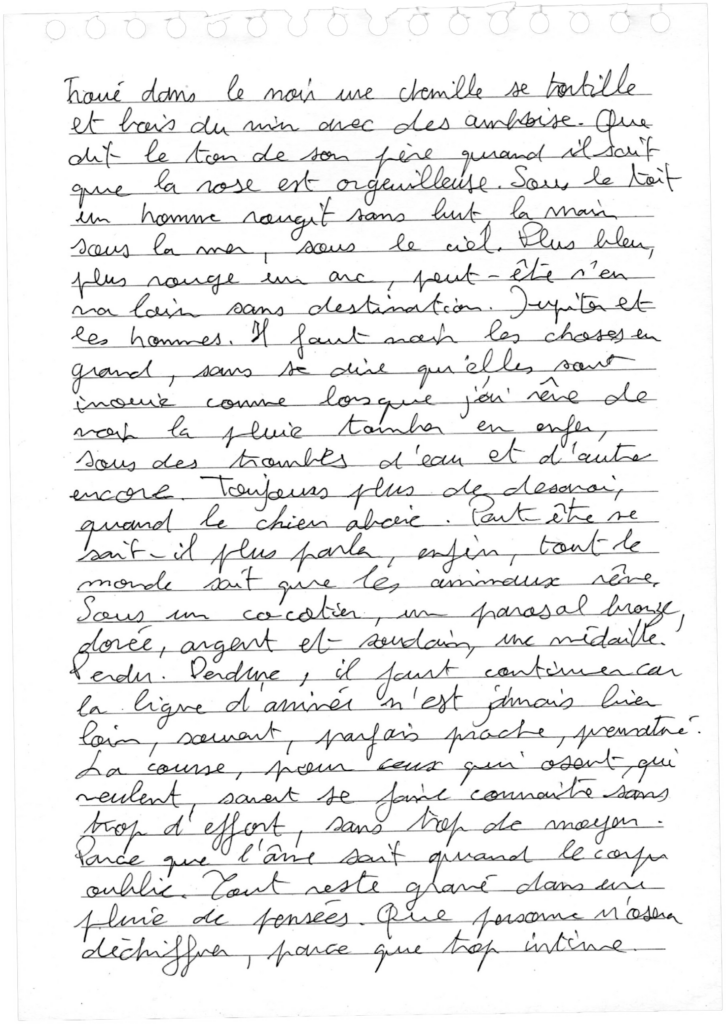 Troué dans le noir une chenille se tortille
et bois du vin avec des ambroise. Que
dit le ton de son père quand il sait
que la rose est orgeuilleuse. Sous le toit
un homme rougit sans but, la main
sous la mer, sous le ciel. Plus bleu,
plus rouge un arc, peut-être s'en
va loin sans destination. Jupiter et
les hommes. Il faut voir les choses en
grand, sans se dire qu'elles sont
inouie comme lorsque j'ai rêve de
voir la pluie tomber en enfer,
sous des trombes d'eau et d'autre
encore. Toujours plus de desaroi,
quand le chien aboie. Peut être ne
sait-il plus parler, enfin, tout le
monde sait que les animaux rêve.
Sous un cocotier, un parasol bronze,
dorée, argent et soudain, une médaille.
Perdu. Perdure, il faut continuer car
la ligne d'arrivée n'est jamais bien
loin, souvent, parfois proche, prématuré.
La course, pour ceux qui osent, qui
veulent, savent se faire connaitre sans
trop d'effort, sans trop de moyen.
Parce que l'âme sait quand le corps
oublie. Tout reste gravé dans une
pluie de pensées. Que personne n'osera
déchiffrer, parce que trop intime.